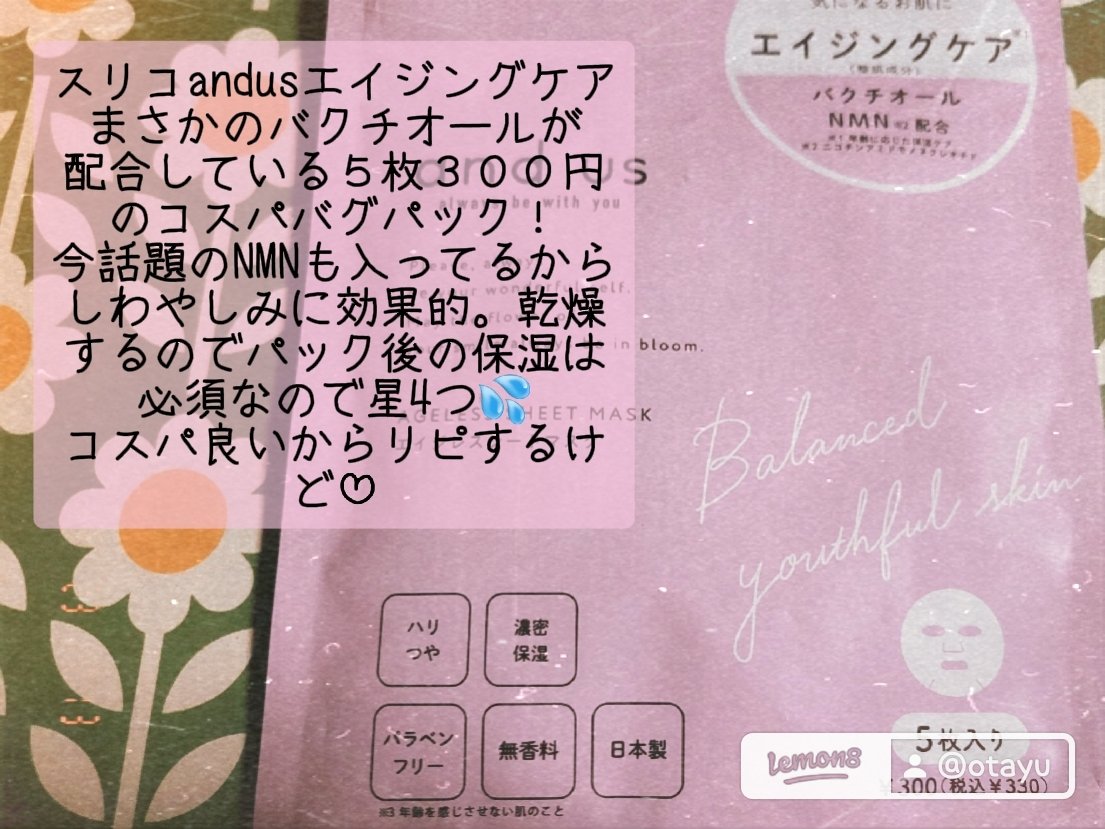 気になるお肌に
エイジングケア※1
(整肌成分)
バクチオール
NMN※2配合
※1 年齢に応じた保湿ケア
※2 ニコチンアミドモノヌクレオチド
スリコandusエイジングケア
まさかのバクチオールが
配合している５枚３００円
のコスパバグパック！
今話題のNMNも入ってるから
しわやしみに効果的。乾燥
するのでパック後の保湿は
必須なので星4つ💦
コスパ良いからリピするけ
ど♡
and us
always be with you
in bloom.
AGELESS SHEET MASK
Balanced
youthful skin
ハリ
つや
濃密
保湿
パラベン
フリー
無香料
日本製
※3 年齢を感じさせない肌のこと
5枚入り
¥300(税込¥330)
lemon8
@otayu